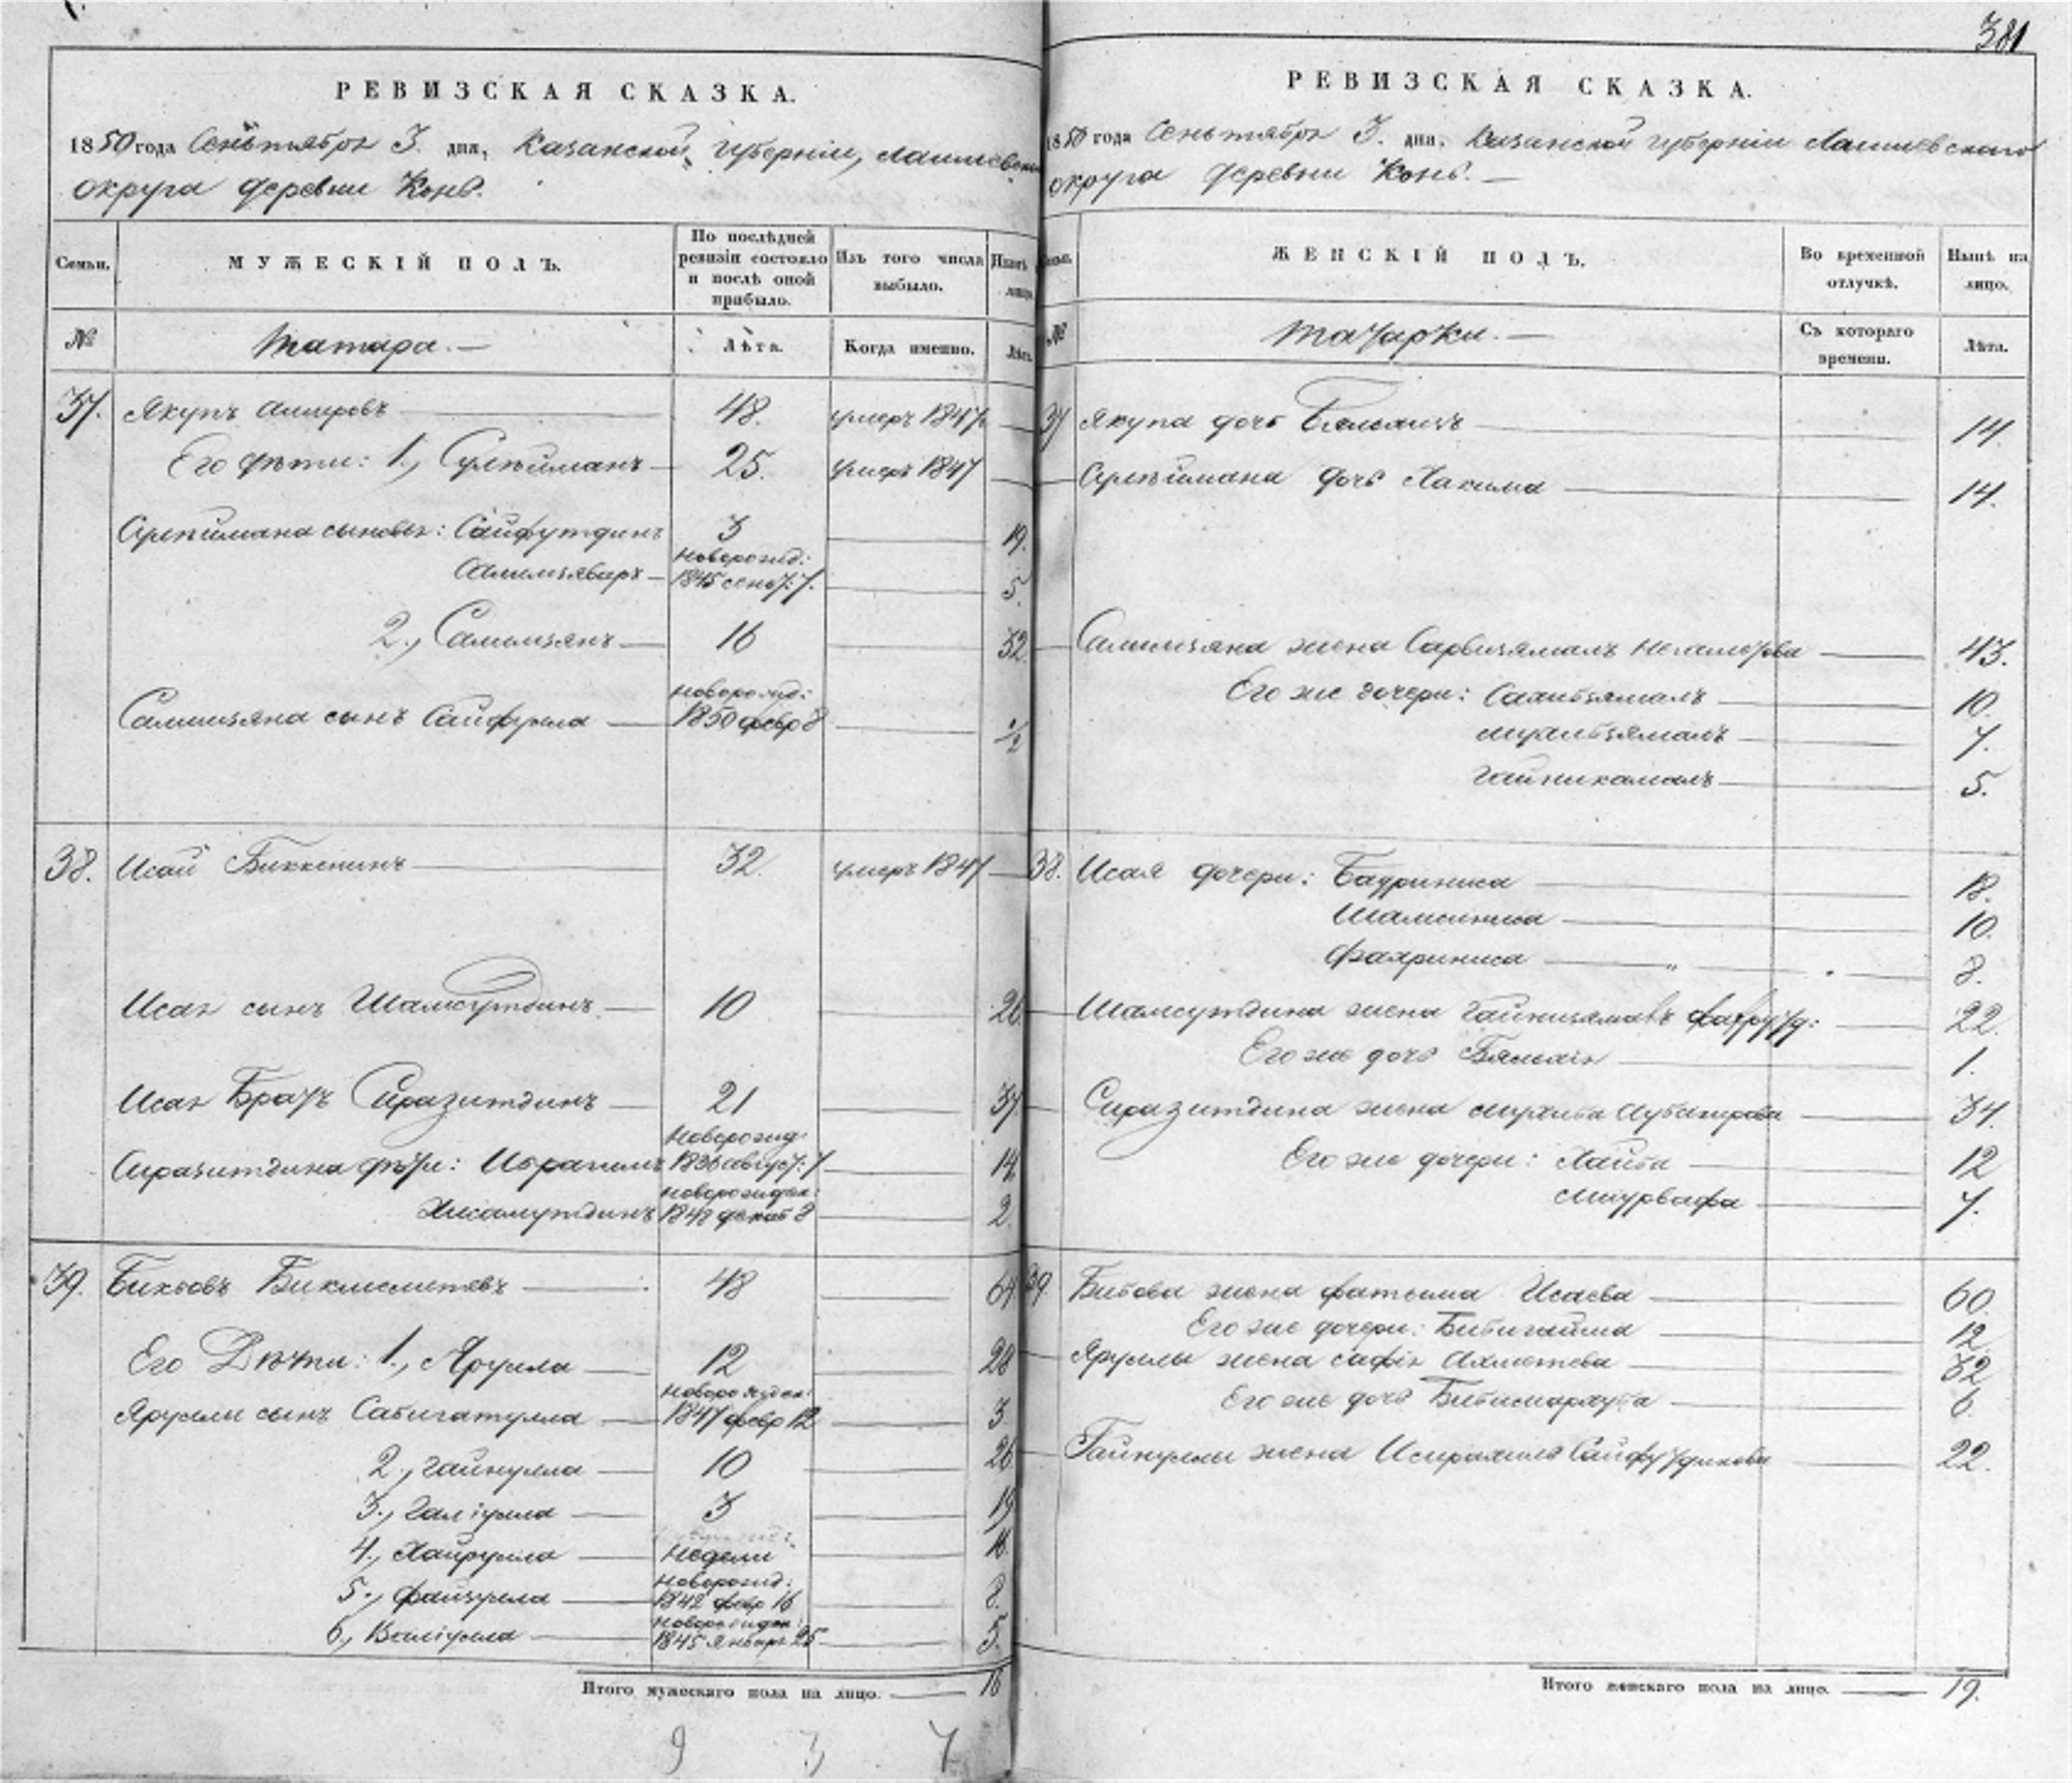 381
РЕВИЗСКАЯ СКАЗКА.
1850 года Сентября 3. дня, Казанской губерніи, Лаишевскаго
округа деревни Конь.
Семьи. МУЖЕСКІЙ ПОЛЪ. По послѣдней ревизіи состояло и послѣ оной прибыло. Изъ того числа выбыло. Нынѣ на лицо.
№ Татара. Лѣта. Когда именно. Лѣта.
37. Якупъ Амировъ 48. умеръ 1847
Его дѣти: 1., Сулейманъ 25. умеръ 1847
Сулеймана сыновья: Сайфутдинъ 3 19.
новорожд:
1845 сент: 7. 5.
2., Салимзянъ 16 32.
новорожд:
Салимзяна сынъ Сайфулла 1850 февр 8 1/2
38. Исай Биккенинъ 32. умеръ 1847
Исая сынъ Шамсутдинъ 10 26
Исая Братъ Сиразитдинъ 21 37
новорожд
Сиразитдина дѣти: Ибрагимъ 1836 август: 14
новорожден:
Хисамутдинъ 1848 декаб 8 2.
39. Бикбовъ 48 64
Его Дѣти: 1., Ярулла 12 28
новорожден:
Яруллы сынъ Сабигатулла 1847 февр 12 3
2., Гайнулла 10 26
3., Галіулла 3 19
4., Хайрулла недели 16.
новорожд:
5., Файзулла 1842 февр 16 8.
новорожден:
6., Валіулла 1845 январ: 25 5.
Итого мужескаго пола на лицо. 16
9 3 7
РЕВИЗСКАЯ СКАЗКА.
1850 года Сентября 3. дня, Казанской губерніи Лаишевскаго
округа деревни Конь.
Семьи. ЖЕНСКІЙ ПОЛЪ. Во временной отлучкѣ. Нынѣ на лицо.
№ Татарки. Съ котораго времени. Лѣта.
37 Якупа дочь 14.
Сулеймана дочь Хакима 14.
Салимзяна жена Сарвизямалъ 43.
Его же дочери: Сахибзямалъ 10.
Мухибзямалъ 7.
Гайникамалъ 5.
38. Исая дочери: Бадриниса 18.
Шамсиниса 10.
Фахриниса „ 8.
Шамсутдина жена Гайнизямалъ Фахрутд: 22.
Его же дочь 1.
Сиразитдина жена Мухиба Аубакирова 34.
Его же дочери: Хаиба 12
7.
39. Бикбова жена Фатьима Исаева 60.
Его же дочери: Бибигайша 12
Яруллы жена Сафія Ахметева 32
Его же дочь Бибимархуба 6.
Гайнуллы жена Сайфутдинова 22.
Итого женскаго пола на лицо. 19.